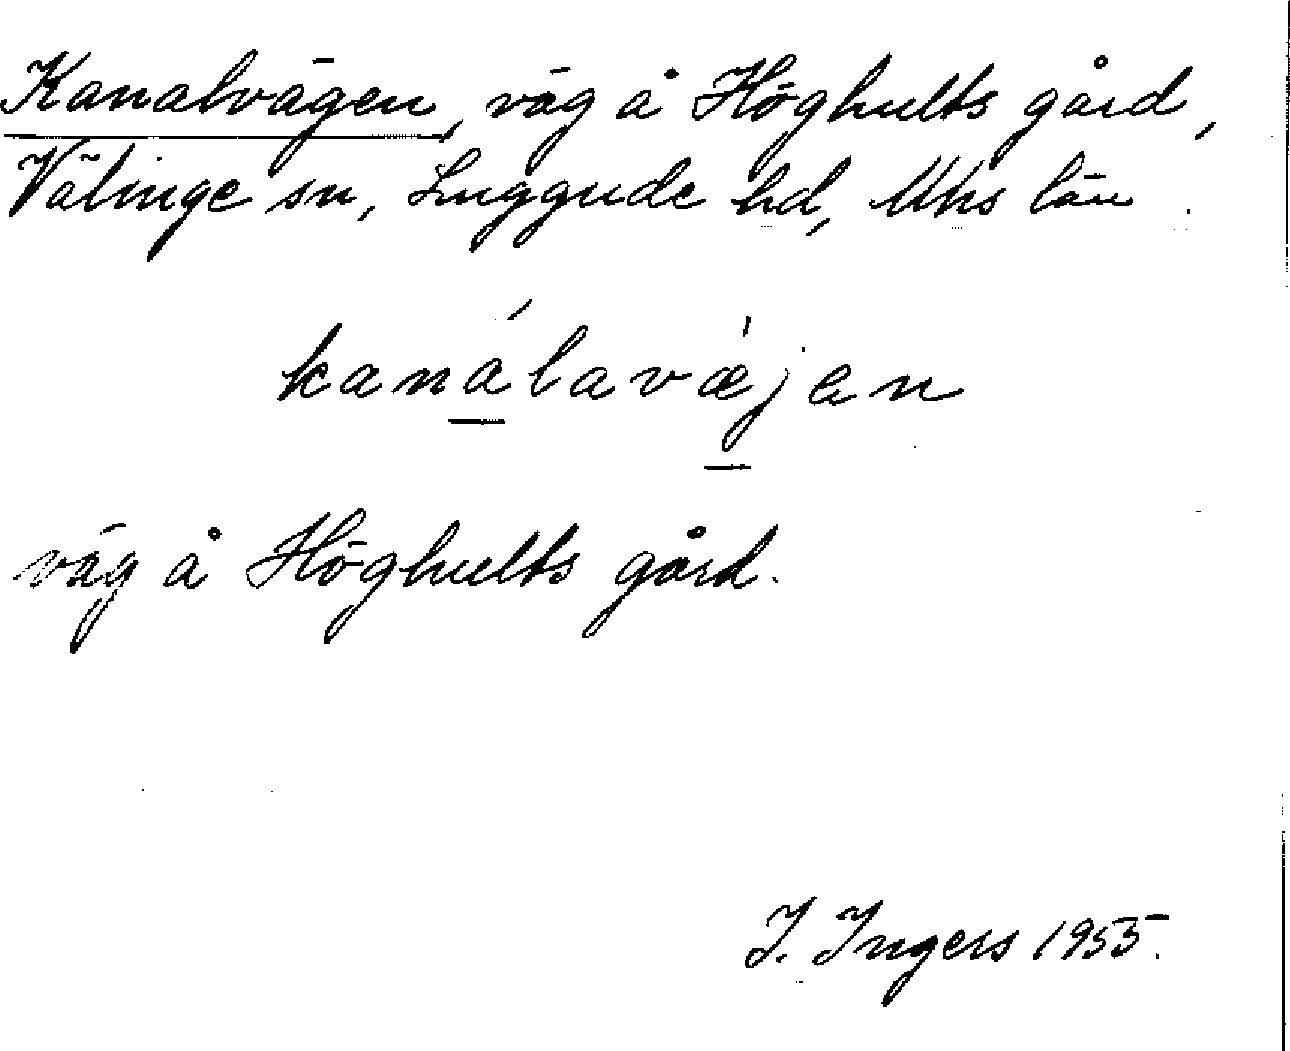 Kanalvägen, väg å Höghults gård,
Välinge sn, Luggude hd, Mhs län
kanálavæ̀jen
väg å Höghults gård.
I. Ingers 1955.